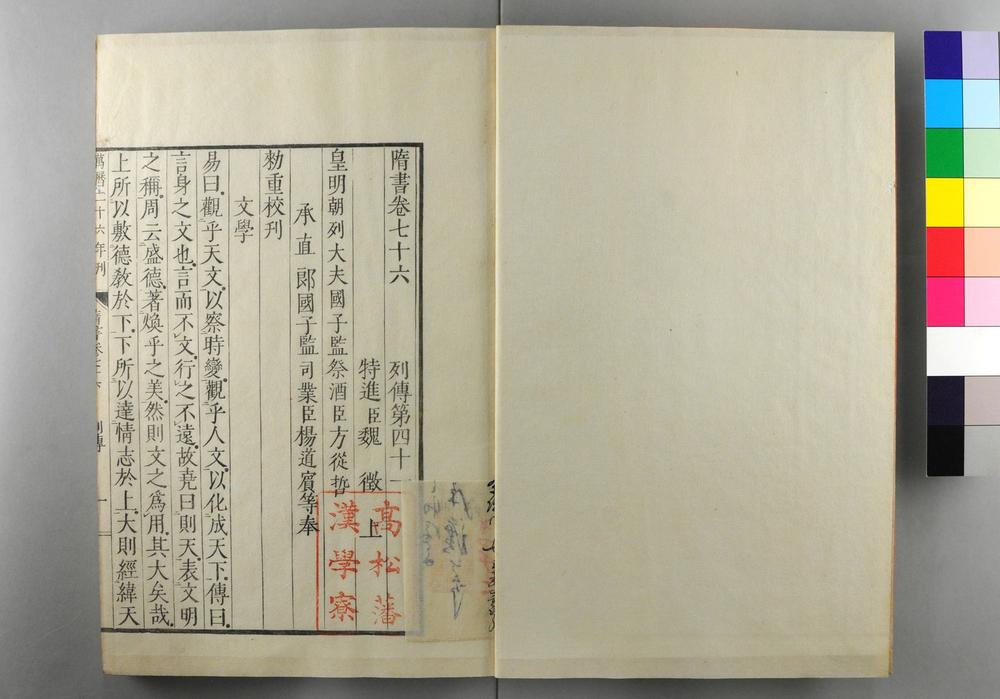 隋書卷七十六 列傳第四十一
特進臣魏 徵 上
皇明朝列大夫國子監祭酒臣方從哲
承直郎國子監司業臣楊道賓等奉
勑重校刊
文學
易曰觀乎天文以察時變觀乎人文以化成天下傳曰
言身之文也言而不文行之不遠故堯曰則天表文明
之稱周云盛德著煥乎之美然則文之爲用其大矣哉
上所以敷德教於下下所以達情志於上大則經緯天
萬曆二十六年刊
列傳
一
高松藩
漢學寮